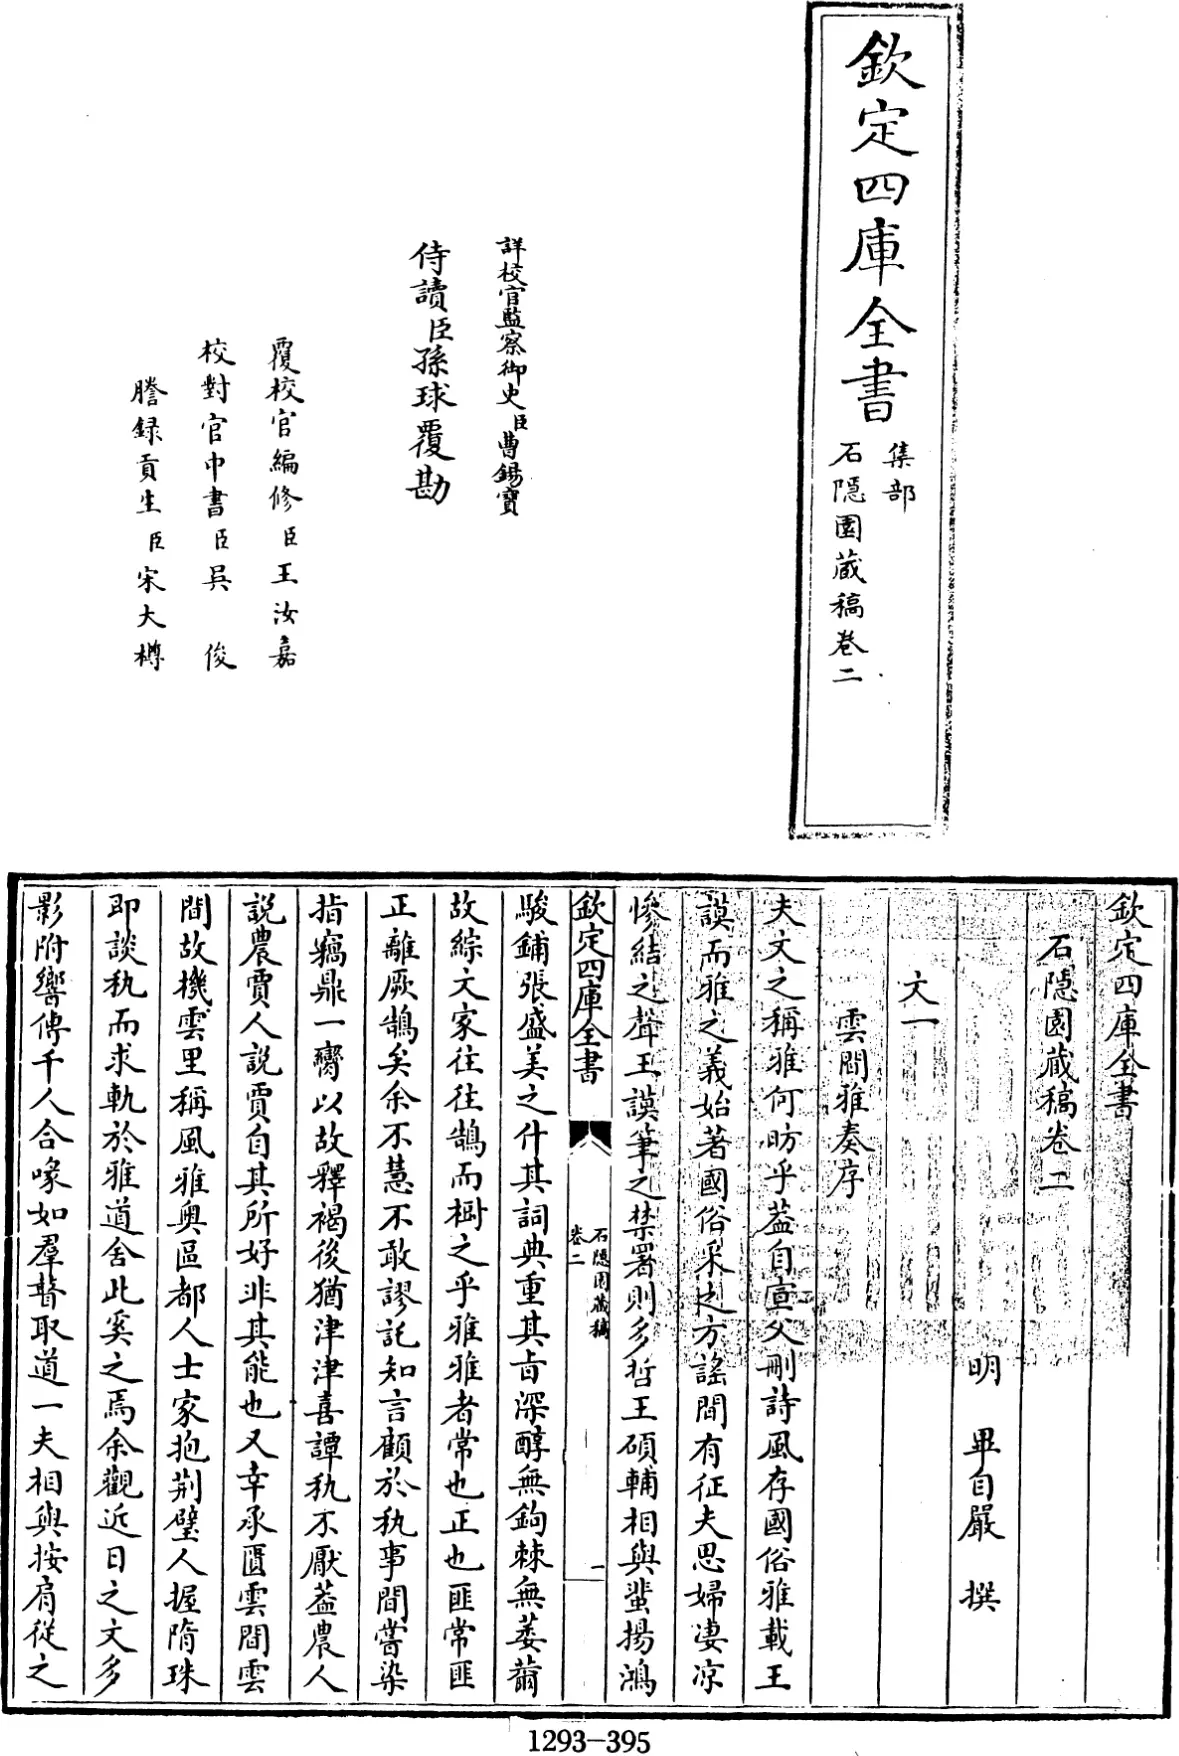 欽定四庫全書
集部
石隱園藏稿卷二
詳校官監察御史臣曹錫寶
侍讀臣孫球覆勘
覆校官編修臣王汝嘉
校對官中書臣吳俊
謄録貢生臣宋大樽
欽定四庫全書
石隱園藏稿卷二
明 畢自嚴 撰
文一
雲間雅奏序
夫文之稱雅何昉乎葢自宣父刪詩風存國俗雅載王
謨而雅之義始著國俗采之方謠間有征夫思婦凄凉
慘結之聲王謨筆之禁署則多哲王碩輔相與蜚揚鴻
駿鋪張盛美之什其詞典重其旨深醇無鉤棘無萎薾
欽定四庫全書
石隱園藏稿
卷二
一
故綜文家往往鵠而樹之乎雅雅者常也正也匪常匪
正離厥鵠矣余不慧不敢謬託知言顧於秇事間嘗染
指竊鼎一臠以故釋褐後猶津津喜譚秇不厭葢農人
説農賈人説賈自其所好非其能也又幸承匱雲間雲
間故機雲里稱風雅奥區都人士家抱荆璧人握隋珠
即談秇而求軌於雅道舍此奚之焉余觀近日之文多
影附響傳千人合喙如羣瞽取道一夫相與按肩從之
1293-395